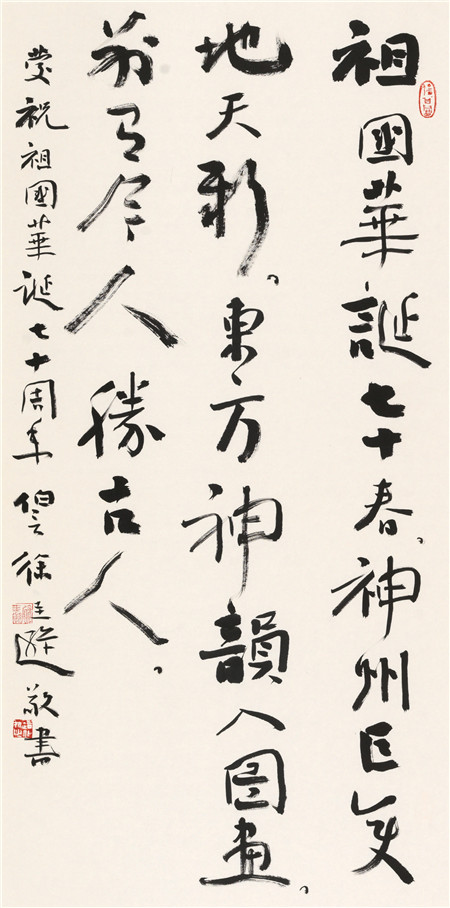 祖國華誕七十春、神州巨变
地天新。東方神韻入圖畫。
有今人勝古人。
慶祝祖國華誕七十周年 徐圭遜敬書